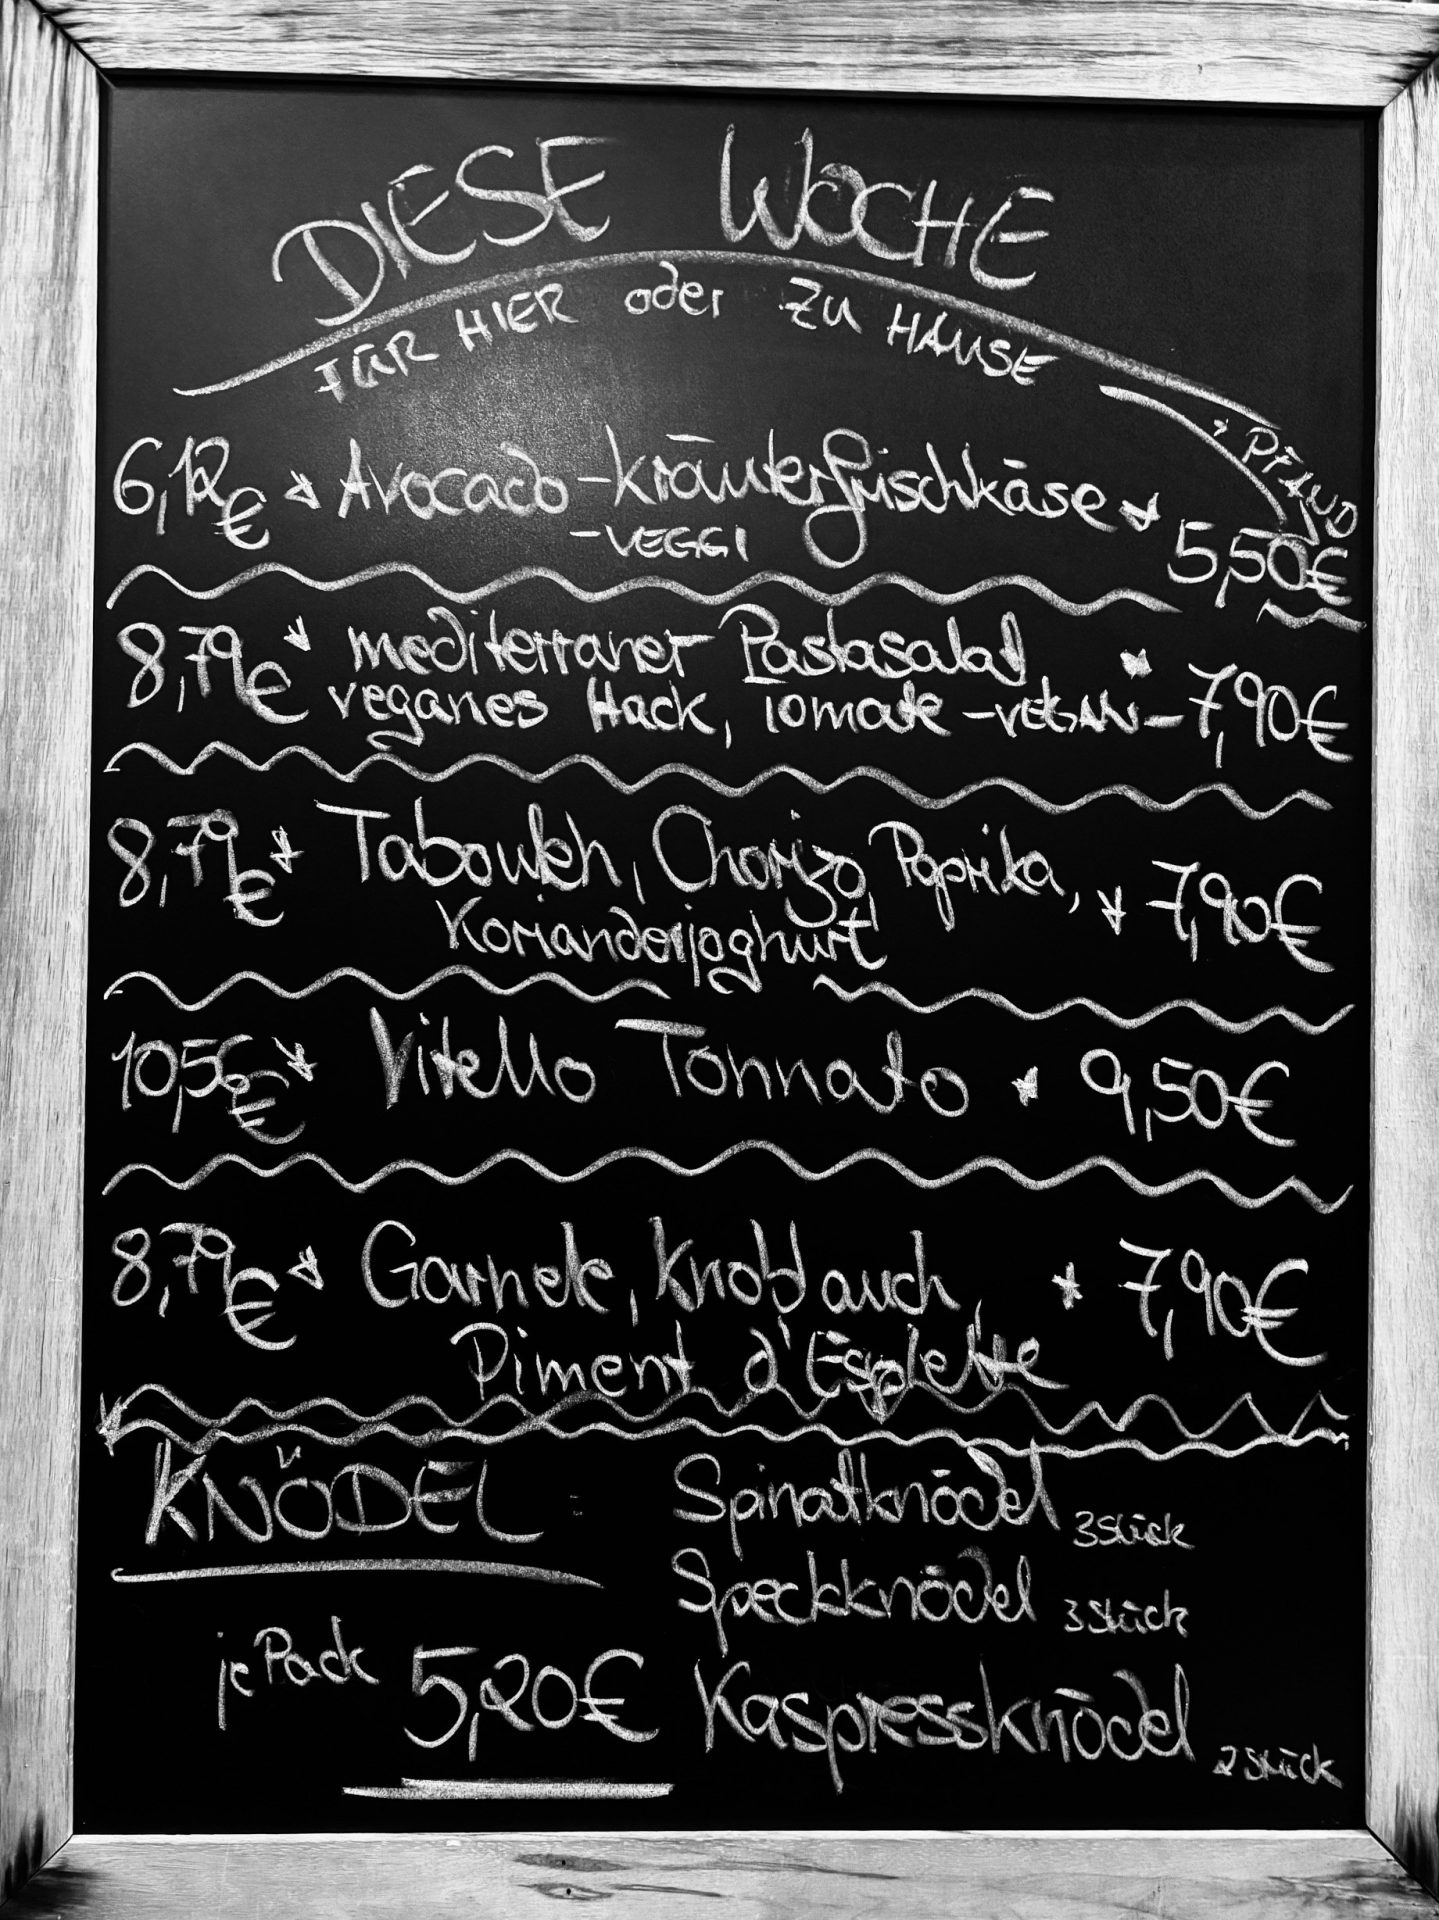 DIESE WOCHE
FÜR HIER oder ZU HAUSE
+ PFAND
6,12€ Avocado-Kräuterfrischkäse 5,50€
-VEGGI
8,79€ mediterraner Pastasalat 7,90€
veganes Hack, Tomate -VEGAN-
8,79€ Tabouleh, Chorizo, Paprika, 7,90€
Korianderjoghurt
10,56€ Vitello Tonnato 9,50€
8,79€ Garnele, Knoblauch, 7,90€
Piment d'Espelette
KNÖDEL: Spinatknödel 3 Stück
Speckknödel 3 Stück
je Pack 5,20€ Kaspressknödel 2 Stück